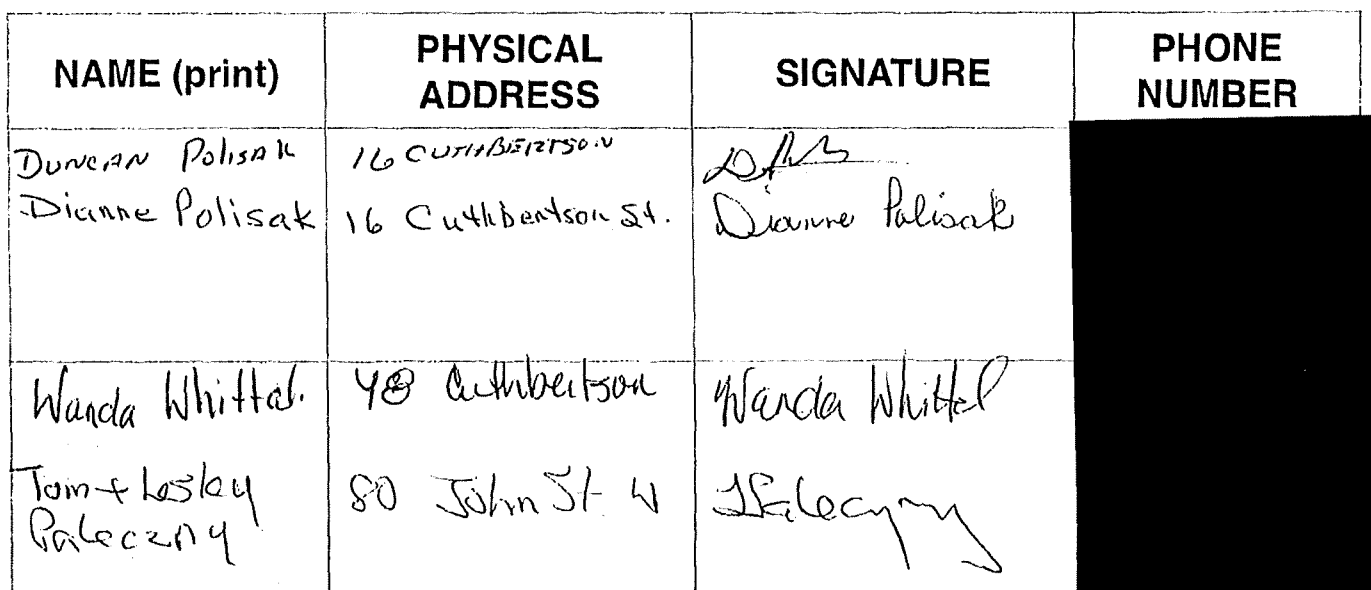 NAME (print) PHYSICAL ADDRESS SIGNATURE PHONE NUMBER
DUNCAN Polisak 16 CUTHBERTSON
Dianne Polisak 16 Cuthbertson St. Dianne Polisak
Wanda Whittal. 48 Cuthbertson Wanda Whittal
Tom + Lesley 80 John St. W LPaleczny
Paleczny